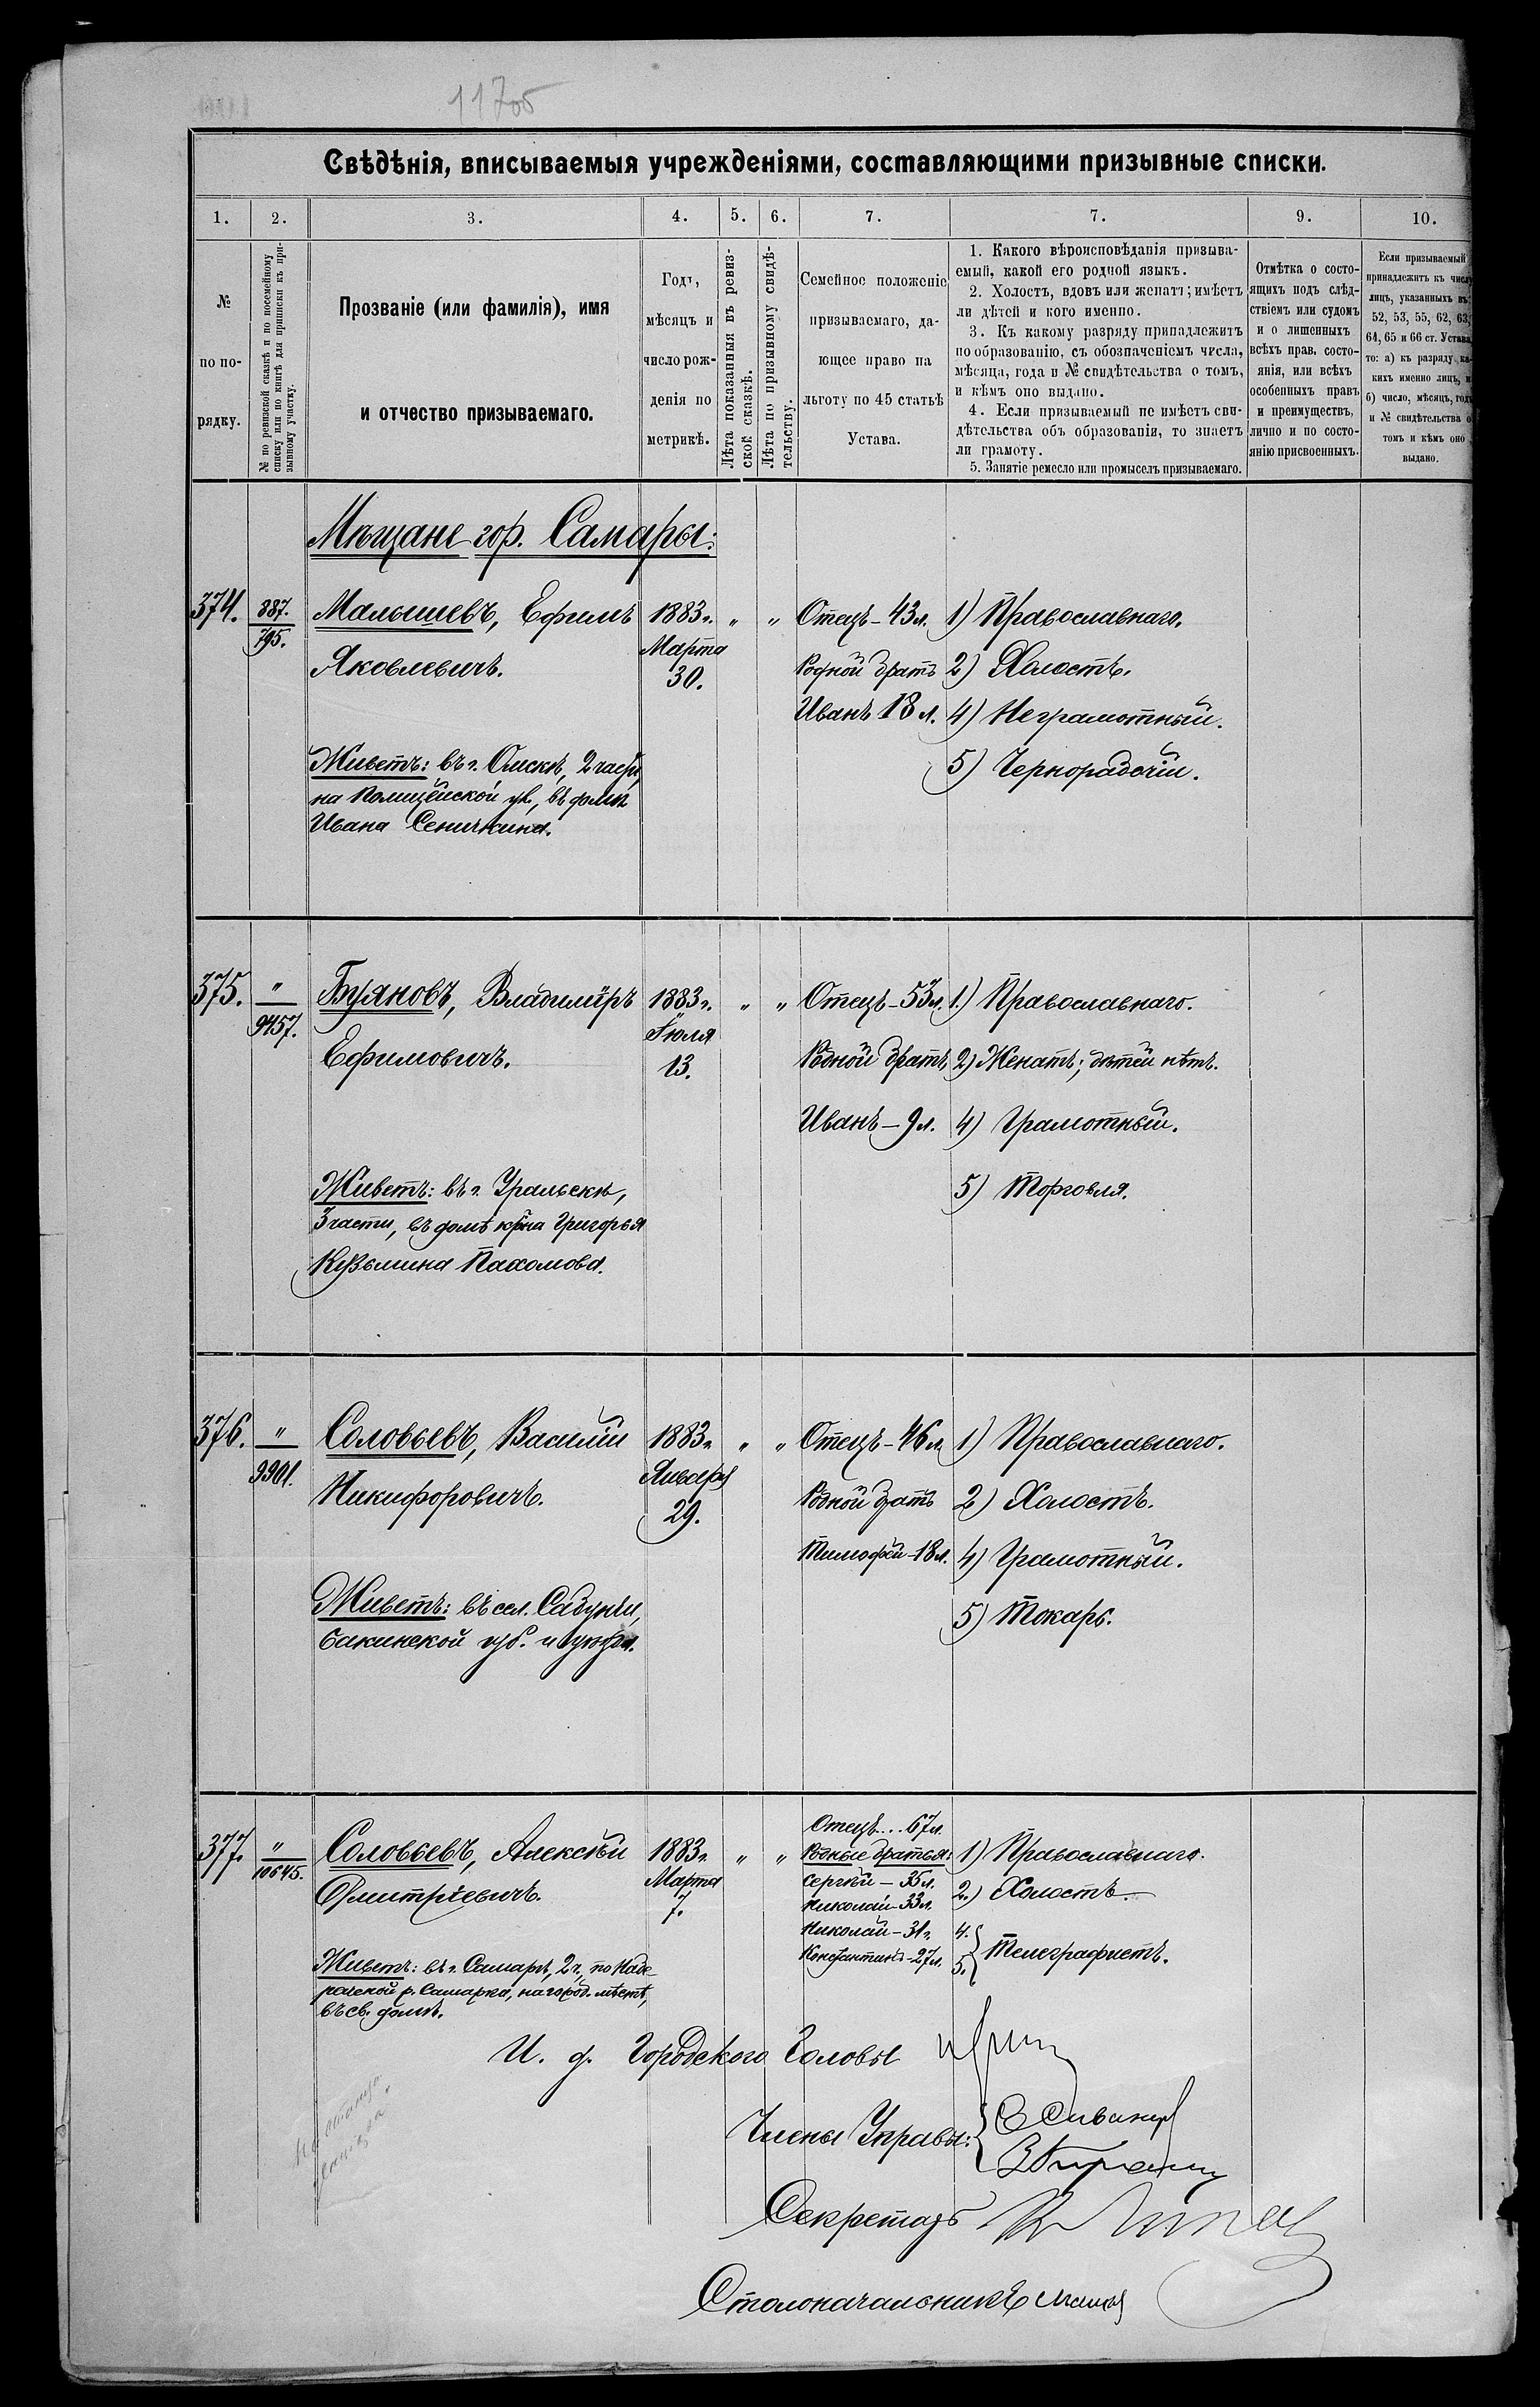 117об
Свѣдѣнія, вписываемыя учрежденіями, составляющими призывные списки.
1. 2. 3. 4. 5. 6. 7. 7. 9. 10.
№
по по-
рядку.
№ по ревизской сказкѣ и по посемейному
списку или по книгѣ для приписки къ при-
зывному участку.
Прозваніе (или фамилія), имя
и отчество призываемаго.
Годъ,
мѣсяцъ и
число рож-
денія по
метрикѣ.
Лѣта показанныя въ ревиз-
ской сказкѣ.
Лѣта по призывному свидѣ-
тельству.
Семейное положеніе
призываемаго, да-
ющее право на
льготу по 45 статьѣ
Устава.
1. Какого вѣроисповѣданія призыва-
емый, какой его родной языкъ.
2. Холостъ, вдовъ или женатъ; имѣетъ
ли дѣтей и кого именно.
3. Къ какому разряду принадлежитъ
по образованію, съ обозначеніемъ числа,
мѣсяца, года и № свидѣтельства о томъ,
и кѣмъ оно выдано.
4. Если призываемый не имѣетъ сви-
дѣтельства объ образованіи, то знаетъ
ли грамоту.
5. Занятіе ремесло или промыселъ призываемаго.
Отмѣтка о состо-
ящихъ подъ слѣд-
ствіемъ или судомъ
и о лишенныхъ
всѣхъ прав. состо-
янія, или всѣхъ
особенныхъ правъ
и преимуществъ,
лично и по состо-
янію присвоенныхъ.
Если призываемый
принадлежитъ къ числу
лицъ, указанныхъ въ
52, 53, 55, 62, 63,
64, 65 и 66 ст. Устава,
то: а) къ разряду ка-
кихъ именно лицъ, и
б) число, мѣсяцъ, годъ
и № свидѣтельства о
томъ и кѣмъ оно
выдано.
Мѣщане гор. Самары:
374. 387. Малышевъ, Ефимъ 1883 г. " " Отецъ - 43 л. 1) Православнаго.
795. Яковлевичъ. Марта 30. Родной братъ 2) Холостъ.
Иванъ 18 л. 4) Неграмотный.
5) Чернорабочій.
Живетъ: въ г. Омскѣ, 2 части,
на Полицейской ул., въ домѣ
Ивана Сеничкина.
375. " Буяновъ, Владиміръ 1883 г. " " Отецъ - 53 л. 1) Православнаго.
9457. Ефимовичъ. Іюля 13. Родной братъ 2) Женатъ; дѣтей нѣтъ.
Иванъ - 9 л. 4) Грамотный.
5) Торговля.
Живетъ: въ г. Уральскѣ,
3 части, въ домѣ кр-на Григорья
Кузьмина Пахомова.
376. " Соловьевъ, Василій 1883 г. " " Отецъ - 46 л. 1) Православнаго.
9901. Никифоровичъ. Января 29. Родной братъ 2) Холостъ.
Тимофей - 18 л. 4) Грамотный.
5) Токарь.
Живетъ: въ сел. Сабунчи,
Бакинской губ. и уѣзда.
377. " Соловьевъ, Алексѣй 1883 г. " " Отецъ... 67 л.
10645. Дмитріевичъ. Марта 7. Родные братья: 1) Православнаго.
Сергѣй - 35 л.
Николай - 33 л. 2.) Холостъ.
Николай - 31 г. 4.
Константинъ - 27 л. 5. Телеграфистъ.
Живетъ: въ г. Самарѣ, 2 ч., по Набе-
режной р. Самарка, на город. мѣстѣ,
въ св. домѣ.
И. д. Городского Головы
Члены Управы:
Секретарь
Столоначальникъ